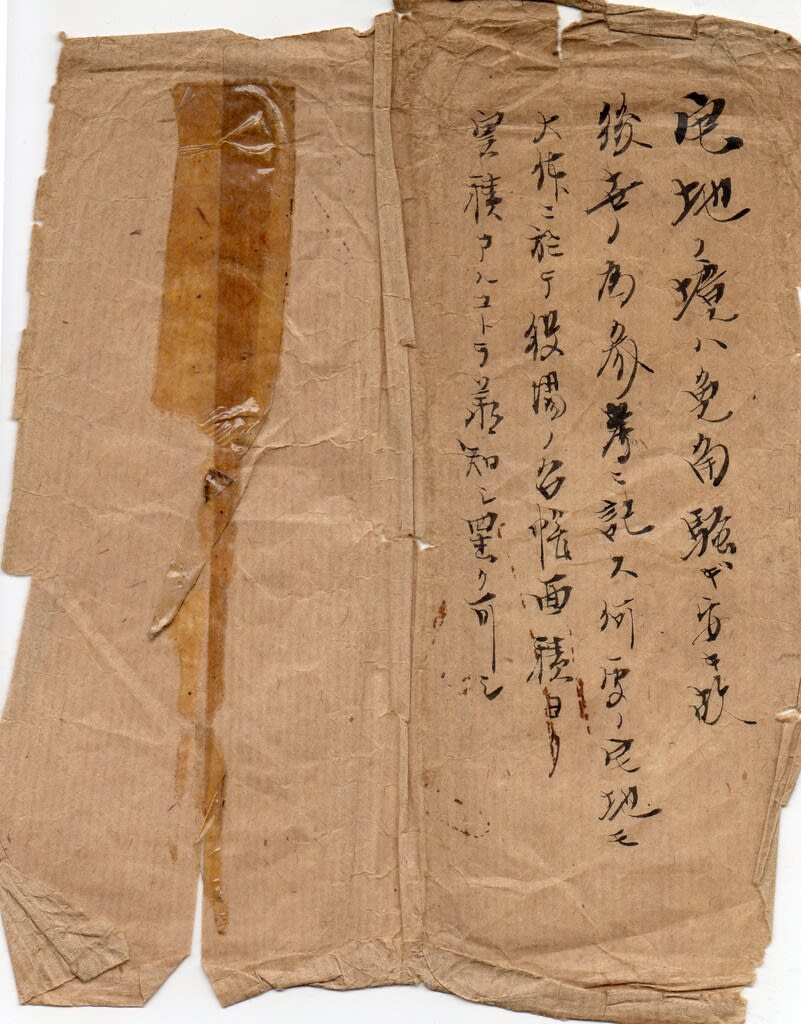 宅地ノ境ハ兎角騒ギ方キ故
後世ノ為参考ニ記ス何處ノ宅地モ
大体ニ於テ役場ノ台帳面積ヨリ
実積アルコトヲ承知シ置ク可シ